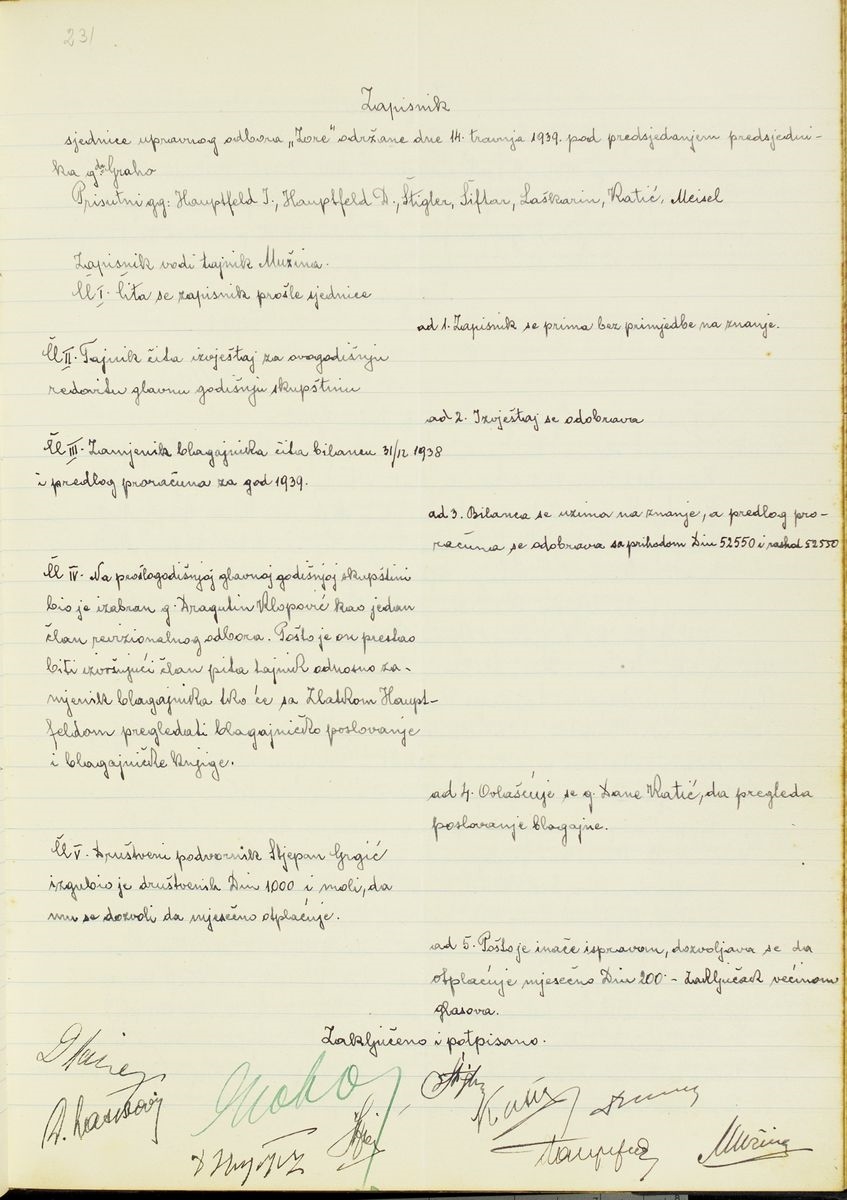 231
Zapisnik
sjednice upravnog odbora „Zore" održane dne 14. travnja 1939. pod predsjedanjem predsjedni-
ka gdn Graho
Prisutni gg: Hauptfeld I., Hauptfeld D., Štigler, Šiftar, Laškarin, Katić, Meisel
Zapisnik vodi tajnik Mužina.
Čl I. Čita se zapisnik prošle sjednice
ad 1. Zapisnik se prima bez primjedbe na znanje.
Čl II. Tajnik čita izvještaj za ovogodišnju
redovitu glavnu godišnju skupštinu
ad 2. Izvještaj se odobrava
Čl III. Zamjenik blagajnika čita bilancu 31/12 1938
i predlog proračuna za god 1939.
ad 3. Bilanca se uzima na znanje, a predlog pro-
računa se odobrava sa prihodom Din 52550 i rashod 52550
Čl IV. Na prošlogodišnjoj glavnoj godišnjoj skupštini
bio je izabran g. Dragutin Klopović kao jedan
član revizionalnog odbora. Pošto je on prestao
biti izvršujući član pita tajnik odnosno za-
mjenik blagajnika tko će sa Zlatkom Haupt-
feldom pregledati blagajničko poslovanje
i blagajničke knjige.
ad 4. Ovlašćuje se g. Dane Katić, da pregleda
poslovanje blagajne.
Čl V. Društveni podvornik Stjepan Grgić
izgubio je društvenih Din 1000 i moli, da
mu se dozvoli da mjesečno otplaćuje.
ad 5. Pošto je inače ispravan, dozvoljava se da
otplaćuje mjesečno Din 200.- Zaključak većinom
glasova.
Zaključeno i potpisano.
Graho
Katić
Mužina